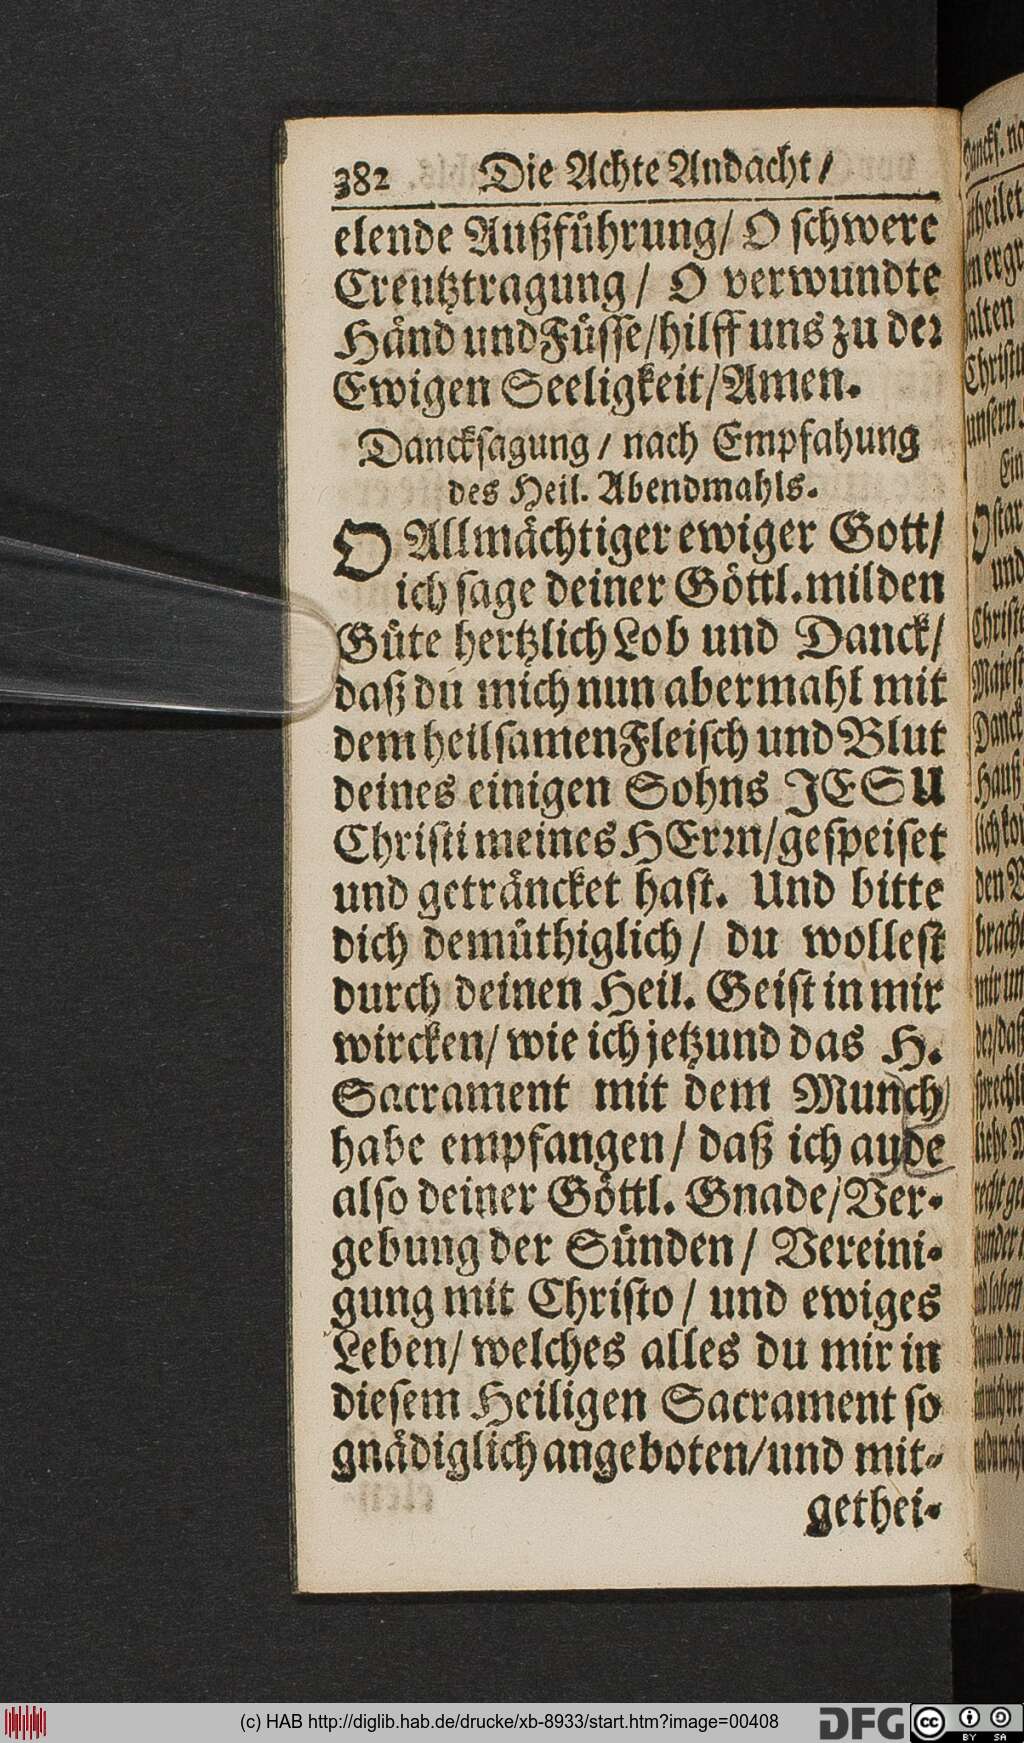 382 Die Achte Andacht /
elende Außführung / O schwere
Creutztragung / O verwundte
Händ und Füsse / hilff uns zu der
Ewigen Seeligkeit / Amen.
Dancksagung / nach Empfahung
des Heil. Abendmahls.
O Allmächtiger ewiger Gott /
ich sage deiner Göttl. milden
Güte hertzlich Lob und Danck /
daß du mich nun abermahl mit
dem heilsamen Fleisch und Blut
deines einigen Sohns JESU
Christi meines HErrn / gespeiset
und geträncket hast. Und bitte
dich demüthiglich / du wollest
durch deinen Heil. Geist in mir
wircken / wie ich jetzund das H.
Sacrament mit dem Munch
habe empfangen / daß ich aude
also deiner Göttl. Gnade / Ver-
gebung der Sünden / Vereini-
gung mit Christo / und ewiges
Leben / welches alles du mir in
diesem Heiligen Sacrament so
gnädiglich angeboten / und mit-
gethei-
(c) HAB http://diglib.hab.de/drucke/xb-8933/start.htm?image=00408
DFG
cc BY SA